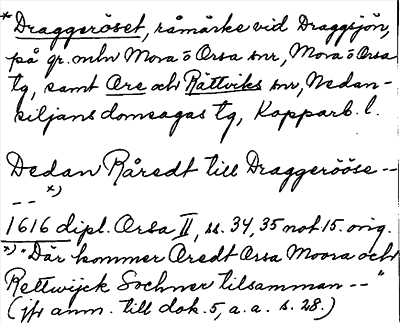 * Draggeröset, råmärke vid Draggsjön,
på gr. mln Mora o Orsa snr, Mora o Orsa
tg, samt Ore och Rättviks snr, Nedan-
siljans domsagas tg, Kopparb. l.
Dedan Råredt till Draggerööse --
-- *)
1616 dipl. Orsa II, ss. 34, 35 not 15. orig.
*) "Där kommer Oredt Orsa Moora och
Rettwijck Sochner tilsamman -- "
(jfr anm. till dok. 5, a. a. s. 28.)